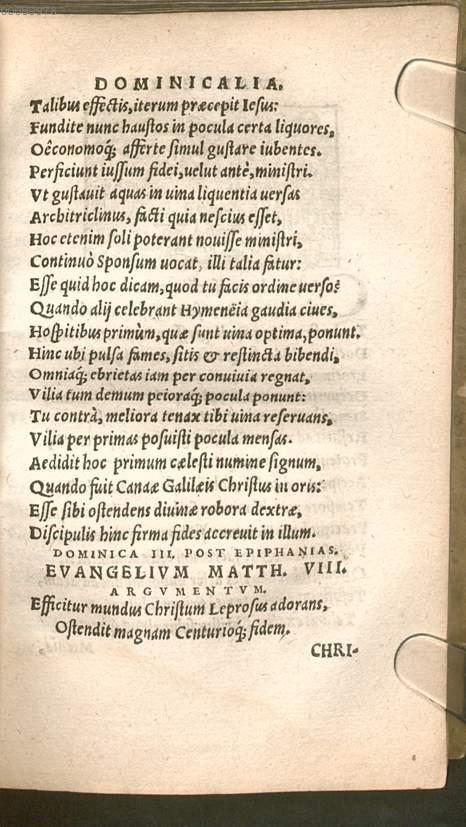 DOMINICALIA.
Talibus effectis, iterum præcepit Iesus:
Fundite nunc haustos in pocula certa liquores,
Oêconomoq́; afferte simul gustare iubentes.
Perficiunt iussum fidei, uelut antè, ministri.
Vt gustauit aquas in uina liquentia uersas
Architriclinus, facti quia nescius esset,
Hoc etenim soli poterant nouisse ministri,
Continuò Sponsum uocat, illi talia fatur:
Esse quid hoc dicam, quod tu facis ordine uerso?
Quando alij celebrant Hymenëia gaudia ciues,
Hospitibus primùm, quæ sunt uina optima, ponunt.
Hinc ubi pulsa fames, sitis & restincta bibendi,
Omniaq́; ebrietas iam per conuiuia regnat,
Vilia tum demum peioraq́; pocula ponunt:
Tu contrà, meliora tenax tibi uina reseruans,
Vilia per primas posuisti pocula mensas.
Aedidit hoc primum cælesti numine signum,
Quando fuit Canaæ Galilæis Christus in oris:
Esse sibi ostendens diuinæ robora dextræ,
Discipulis hinc firma fides accreuit in illum.
DOMINICA III. POST EPIPHANIAS.
EVANGELIVM MATTH. VIII.
ARGVMENTVM.
Efficitur mundus Christum Leprosus adorans,
Ostendit magnam Centurioq́; fidem.
CHRI-